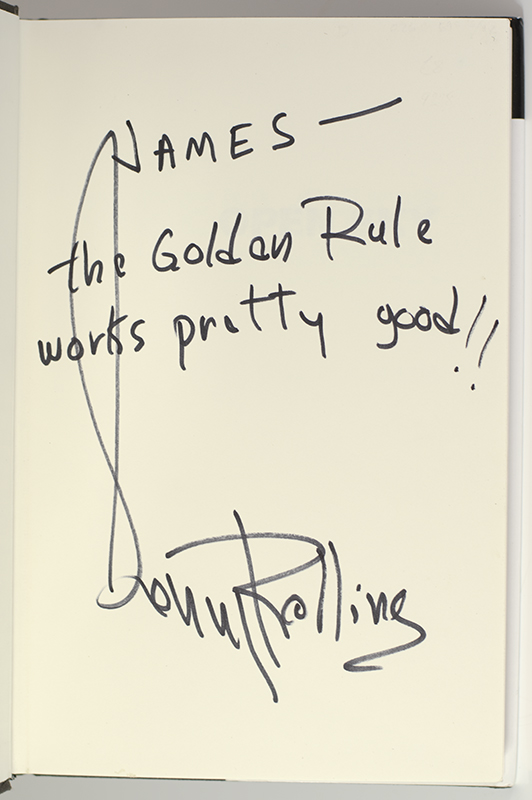 JAMES —
the Golden Rule
works pretty good!!
Sonny Rollins